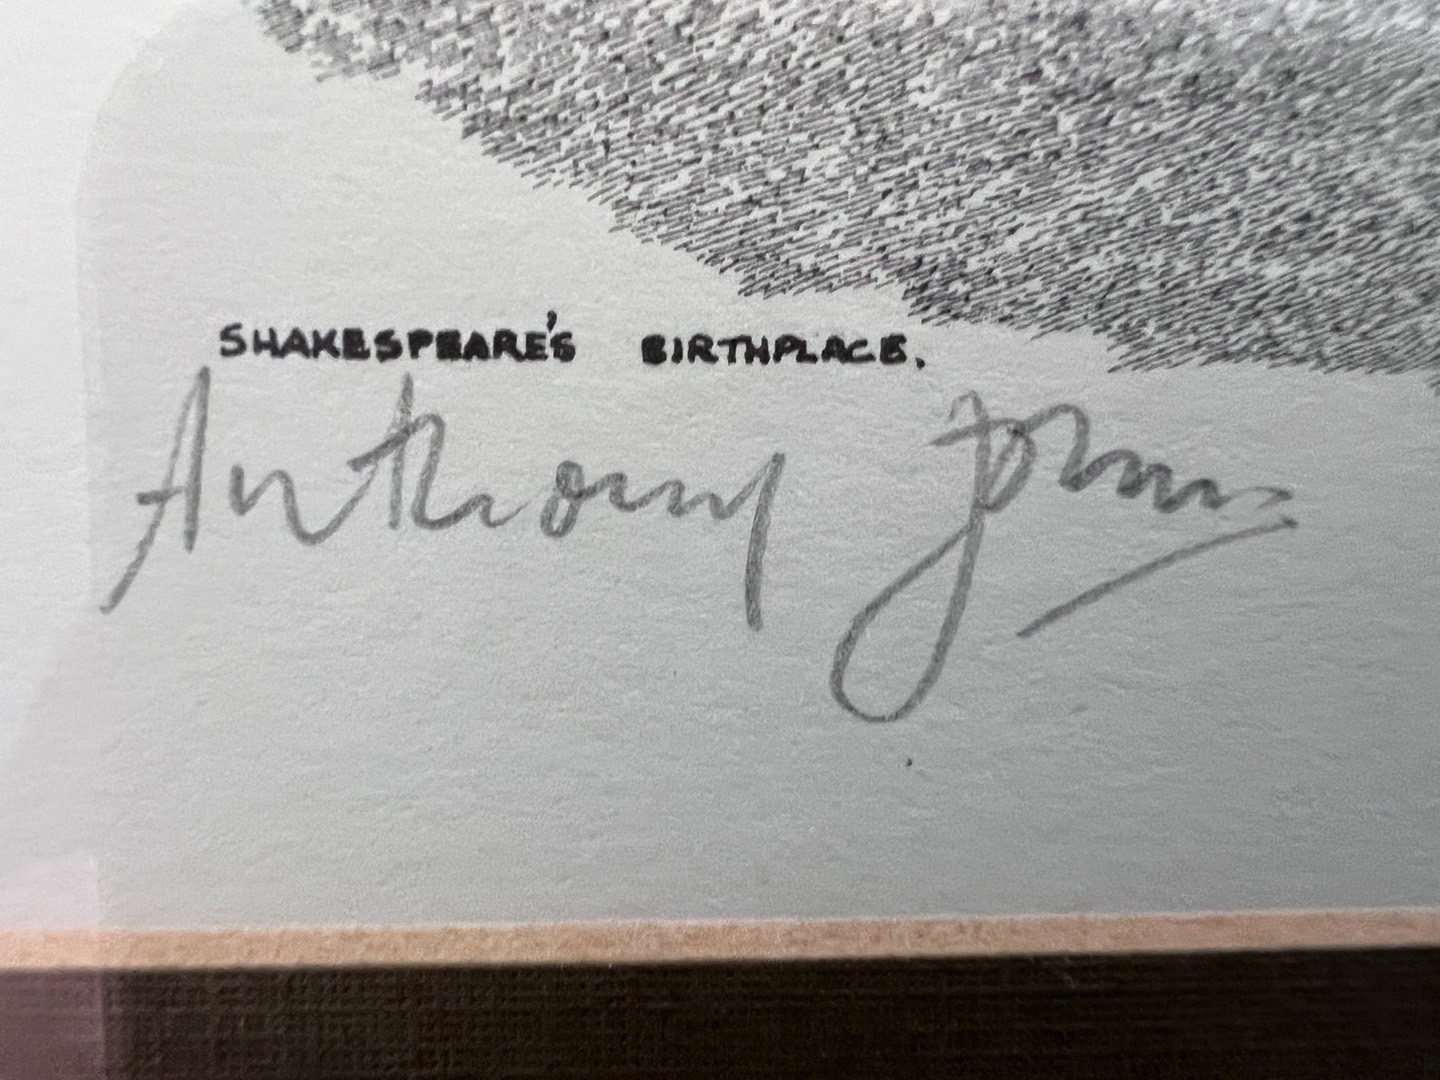 SHAKESPEARE'S BIRTHPLACE.
Anthony